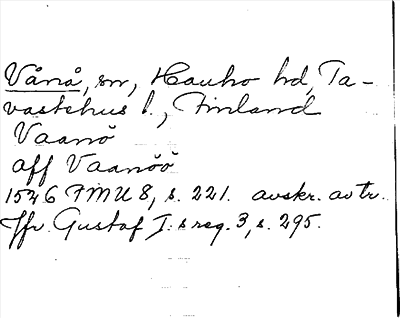 Vånå, sn, Hauho hd, Ta-
vastehus l., Finland
Vaanö
aff Vaanöö
1526 FMU 8, s. 221. avskr. av tr.
Jfr. Gustaf I:s reg. 3, s. 295.